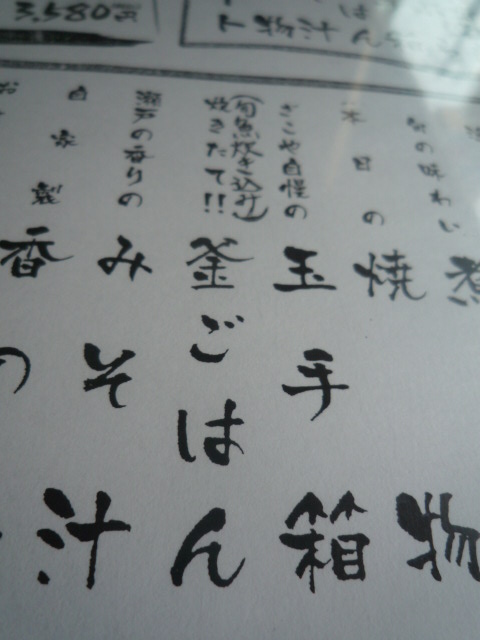 3,580円
は
ト物汁ん
煮
の味わい
本日の
焼物
ざこや自慢の
玉手箱
(旬魚炊き込み)
炊きたて!!
釜ごはん
瀬戸の香りの
みそ汁
自家製
香の
お